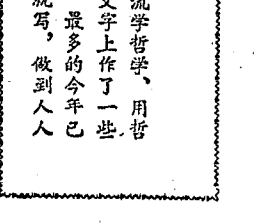 流学哲学、用哲
文字上作了一些
最多的今年已
就写，做到人人